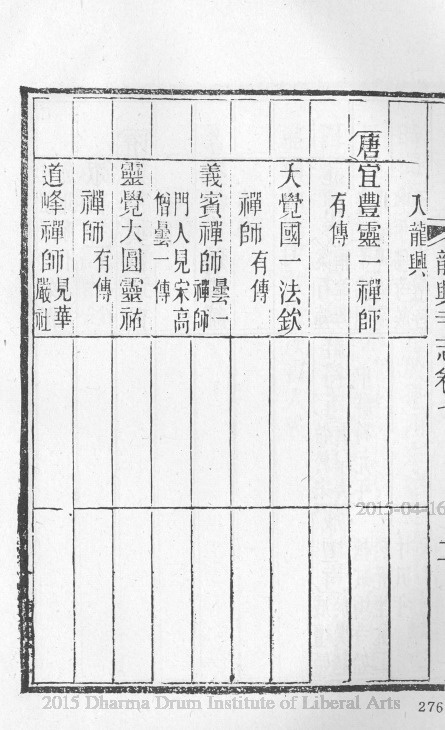 入龍興
唐宜豐靈一禪師
有傳
大覺國一法欽
禪師有傳
義賓禪師曇一禪師
門人見宋高
僧曇一傳
靈覺大圓靈祐
禪師有傳
道峰禪師見華嚴社
2015-04-16
2015 Dharma Drum Institute of Liberal Arts
276